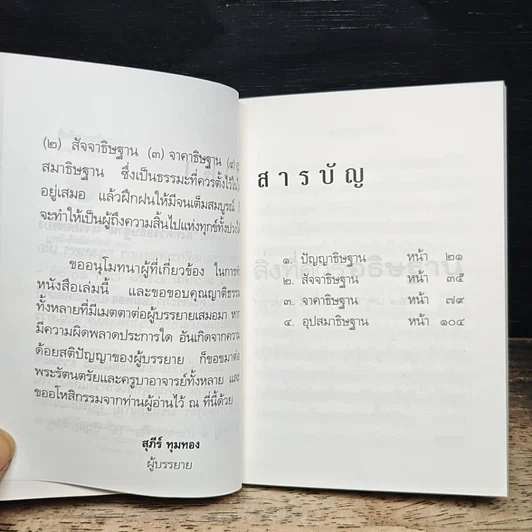 (๒) สัจจาธิษฐาน (๓) จาคาธิษฐาน (๔)
สมาธิษฐาน ซึ่งเป็นธรรมะที่ควรตั้งไว้ใน
อยู่เสมอ แล้วฝึกฝนให้มีจนเต็มสมบูรณ์
จะทำให้เป็นผู้ถึงความสิ้นไปแห่งทุกข์ทั้งปวง
ขออนุโมทนาผู้ที่เกี่ยวข้อง ในการ
หนังสือเล่มนี้ และขอขอบคุณญาติธรรม
ทั้งหลายที่มีเมตตาต่อผู้บรรยายเสมอมา หาก
มีความผิดพลาดประการใด อันเกิดจากความ
ด้อยสติปัญญาของผู้บรรยาย ก็ขอขมาต่อ
พระรัตนตรัยและครูบาอาจารย์ทั้งหลาย และ
ขออโหสิกรรมจากท่านผู้อ่านไว้ ณ ที่นี้ด้วย
สุภีร์ ทุมทอง
ผู้บรรยาย
สารบัญ
๑. ปัญญาธิษฐาน หน้า ๒๑
๒. สัจจาธิษฐาน หน้า ๓๕
๓. จาคาธิษฐาน หน้า ๗๙
๔. อุปสมาธิษฐาน หน้า ๑๐๔